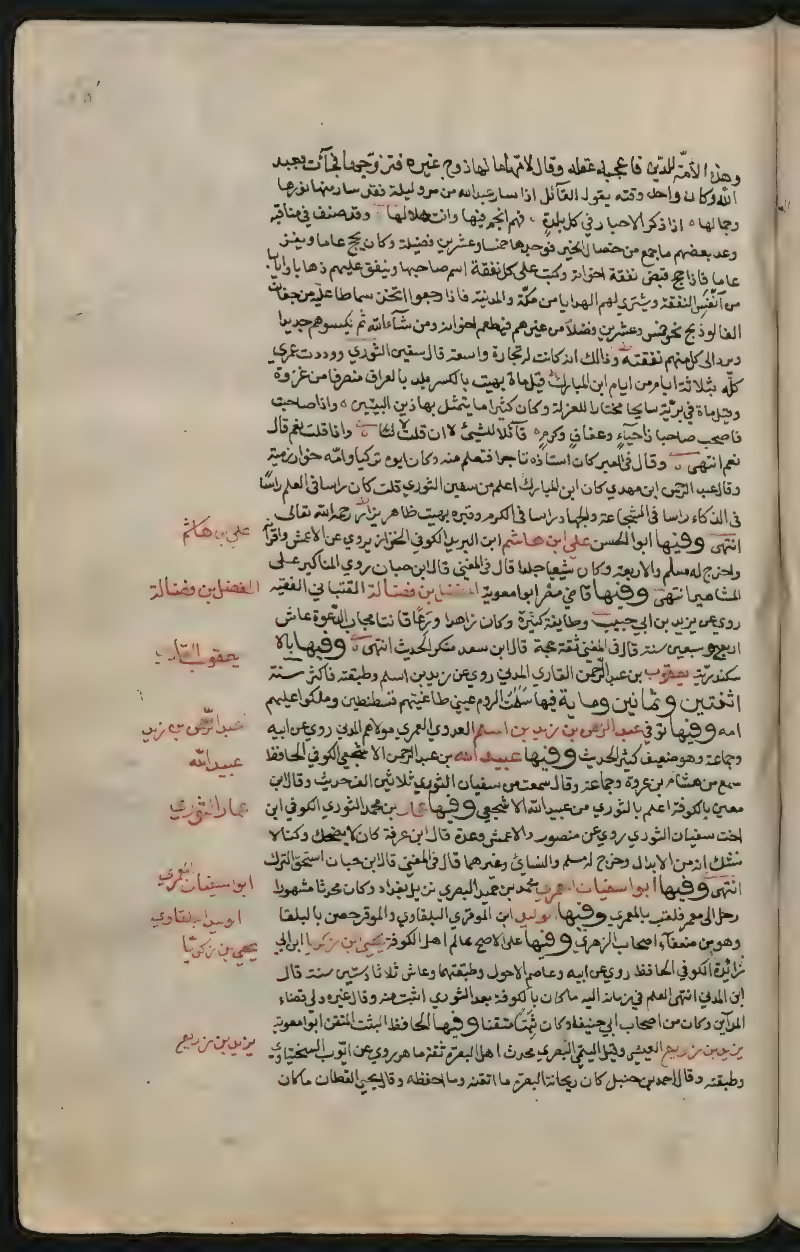 وهذا الأمة للدين فاعجبه عقله وقال لامها ما لها زوج غيره فتزوجها فجأت بعبد
الله وكان واحد وقته يقول القائل اذا سار عبد الله من مرو ليلة فقد سار منها نورها
وجمالها اذا ذكر الاحبار في كل بلدة فهم انجم فيها وانت هلالها وقد صنف في مناقبه
وعد بعضهم ما جمع من خصال الخير فوجدها خمسا وعشرين فضيلة وكان يحج عاما ويغز
عاما فاذا حج قبض نفقة اخوانه وكتب على كل نفقة اسم صاحبها وينفق عليهم ذهابا وايابا
من انفس النفقة ويشتري لهم الهدايا من مكة والمدينة فاذا رجعوا اتخذ سماطا عليه من جفان
الفالوذج نحو خمس وعشرين فضلا من غيرهم فيطعم اخوانه ومن شاء الله ثم يكسوهم جديدا
ويرد الى كل منهم نفقته وذلك انه كانت له تجارة واسعة قال سفين الثوري ووددت عمري
كله بثلاثة ايام من ايام ابن المبارك قيل مات بهيت بالكسر بلد بالعراق منصرفا من غزوة
وقيل مات في برية سايحا مختارا للعزلة وكان كثيرا ما يتمثل بهاذين البيتين واذا صاحبت
فاصحب صاحبا ذا حياء وعفاف وكرم قائلا للشئ لا ان قلت لا واذا قلت نعم قال
نعم انتهى وقال في العبر كان استاذه تاجرا فتعلم منه وكان ابوه تركيا وامه خوارزمية
وقال عبد الرحمن ابن مهدي كان ابن المبارك اعلم من سفين الثوري قلت كان راسا في العلم راسا
في الذكاء راسا في الشجاعة والجهاد راسا في الكرم وقبره بهيت ظاهر يزار رحمه الله تعالى
انتهى وفيها ابو الحسن علي ابن هاشم ابن البريد الكوفي الخزاز يروي عن الاعمش واقرأ
واخرج له مسلم والاربعة وكان شيعيا جلدا قال في المغني قال ابن حبان روى المناكير على
المشاهير انتهى وفيها قاضي مصر ابو معوية المفضل بن فضالة القتباني الفقيه
روى عن يزيد بن ابي حبيب وطايفة كثيرة وكان زاهدا ورعا قانتا مجاب الدعوة عاش
اربع وسبعين سنة قال في المغني ثقة حجة قال ابن سعد منكر الحديث انتهى وفيها بالا
سكندرية يعقوب بن عبد الرحمن القاري المدني روى عن زيد بن اسلم وطبقته فاكثر سنة
اثنتين وثمانين وماية فيها سملت الروم عيني طاغيتهم قسطنطين وملكوا عليهم
امه وفيها توفي عبد الرحمن بن زيد بن اسلم العدوي العمري مولاهم المدني روى عن ابيه
وجماعة وهو ضعيف كثير الحديث وفيها عبيد الله بن عبد الرحمن الاشجعي الكوفي الحافظ
سمع من هشام بن عروة وجماعة وقال سمعت من سفيان الثوري ثلاثين الف حديث وقال ابن
معين ما بالكوفة اعلم بالثوري من عبيد الله الاشجعي وفيها عمار بن محمد الثوري الكوفي ابن
اخت سفيات الثوري روى عن منصور والاعمش وعدة قال ابن عرفة كان لا يضحك وكنا لا
نشك انه من الابدال وخرج له مسلم والنسائي وغيرهما قال في المغني قال ابن حبان استحق الترك
انتهى وفيها ابو اسفيان المعمري محمد بن حميد البصري نزيل بغداد وكان محدثا مشهورا
رحل الى معمر فلقب بالمعمري وفيها الوليد ابن الموقري البلقاوي والموقر حصن بالبلقا
وهو من ضعفاء اصحاب الزهري وفيها على الاصح عالم اهل الكوفة يحيى ابن زكريا ابن ابي
زائدة الكوفي الحافظ روى عن ابيه وعاصم الاحول وطبقتهما وعاش ثلاثا وستين سنة قال
ابن المديني انتهى العلم في زمانه اليه ما كان بالكوفة بعد الثوري اثبت منه وقال غيره ولي قضاء
المداين وكان من اصحاب ابي حنيفة وكان ثبتا متقنا وفيها الحافظ الثبت المتقن ابو معوية
يزيد بن زريع العيشي وقيل التيمي البصري محدث اهل البصرة ثقة ماهر روى عن ايوب السختياني
وطبقته وقال احمد بن حنبل كان ريحانة البصرة ما اتقنه وما احفظه وقال يحيى القطان ما كان
علي بن هاشم
الفضل بن فضالة
يعقوب القارى
عبد الرحمن بن زيد
عبيد الله
عمار الثوري
ابو سفيان المعمري
الوليد البلقاوي
يحيى بن زكريا
يزيد بن زريع